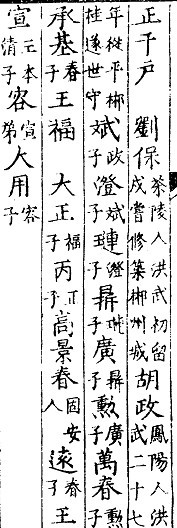 正千戶　劉保茶陵人洪武初留戍嘗修築郴州城胡政鳳陽人洪武二十七
年從平郴桂遂世守斌政子澄斌子璉澄子昇璉子廣昇子勲廣子萬春勲子
承基春子王福　大正福子丙正子高景春因安人遠春子王
宣玉本清子容宣弟大用容子